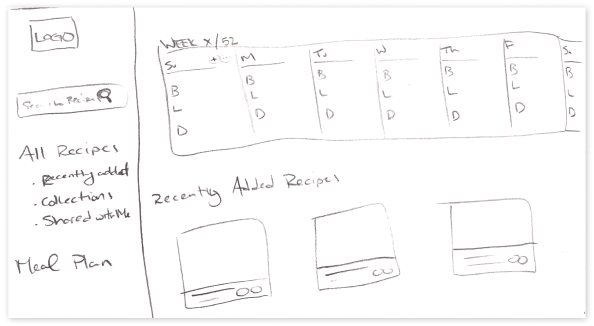 LOGO
Search Recipes
All Recipes
. Recently added
. Collections
. Shared with Me
Meal Plan
WEEK X/52
Su M Tu W Th F Sa
B B B B B B B
L L L L L L L
D D D D D D D
Recently Added Recipes